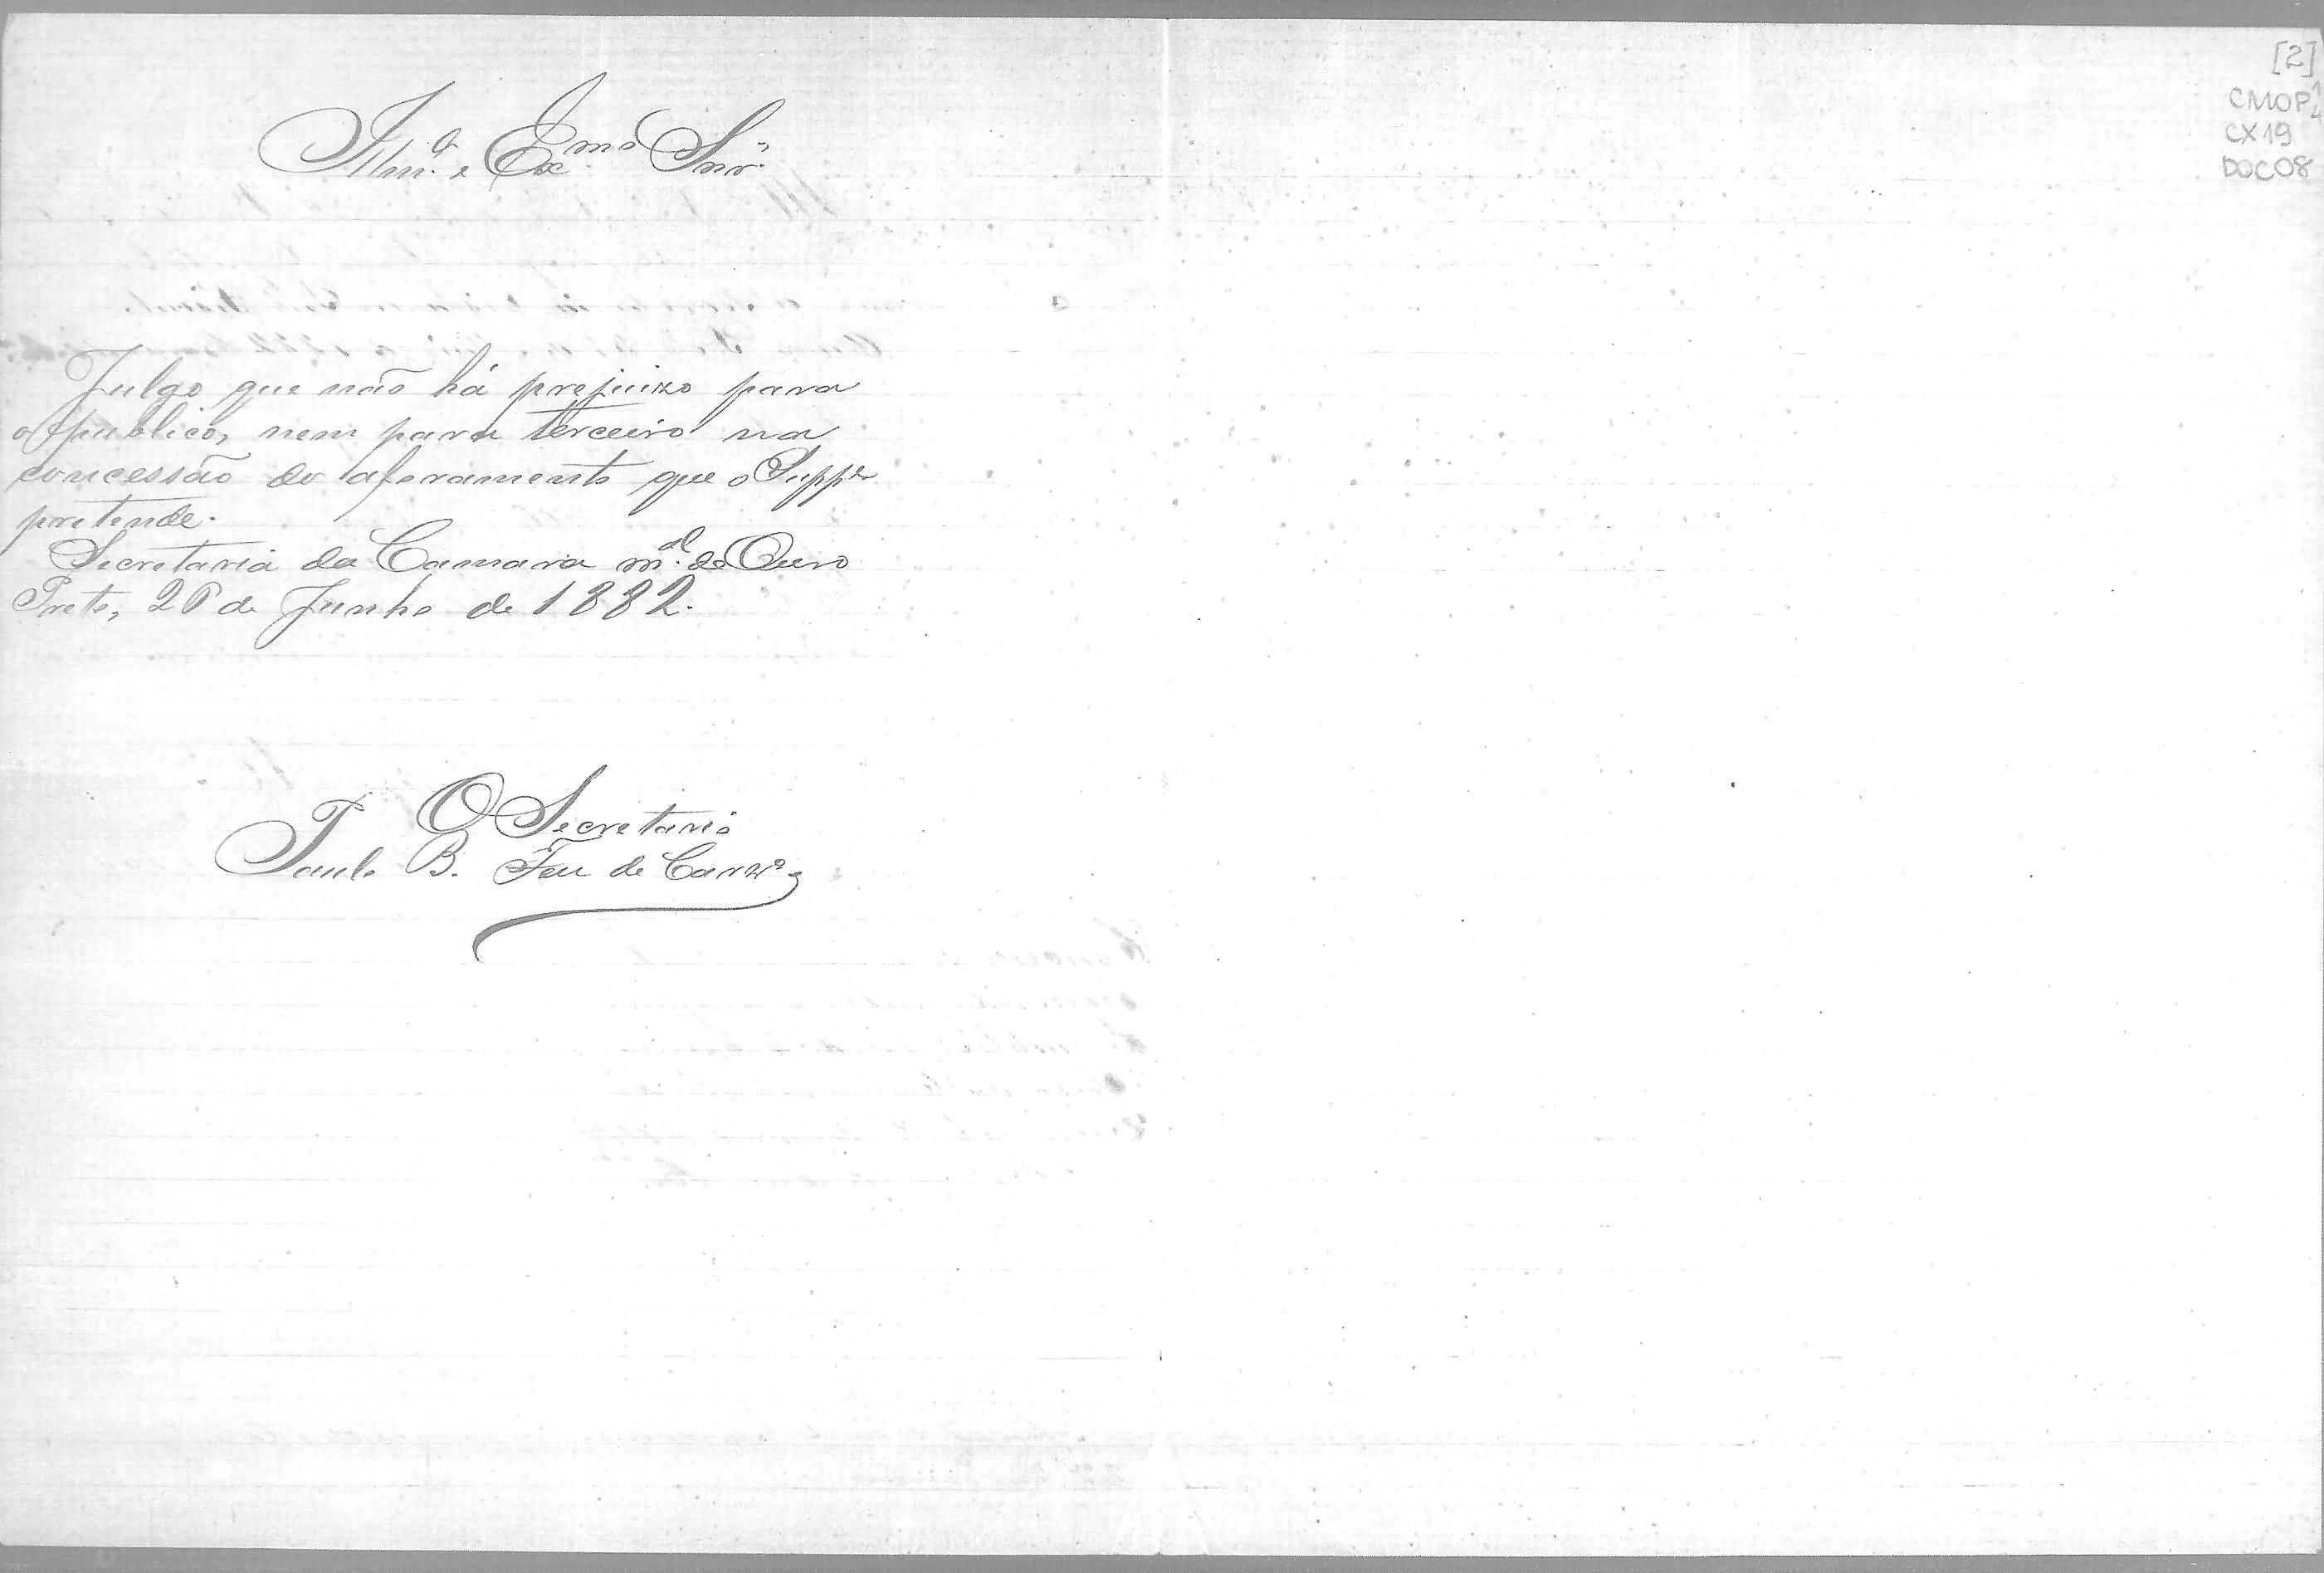 [2]
CMOP
CX19
DOC08
Illmº. e Exmº. Snr.
Julgo que não há prejuizo para
o publico, nem para terceiro na
concessão do aforamento que o Suppe
pretende.
Secretaria da Camara mal. de Ouro
Preto, 26 de Junho de 1882.
O Secretario
Paulo B. Feu de Carvº